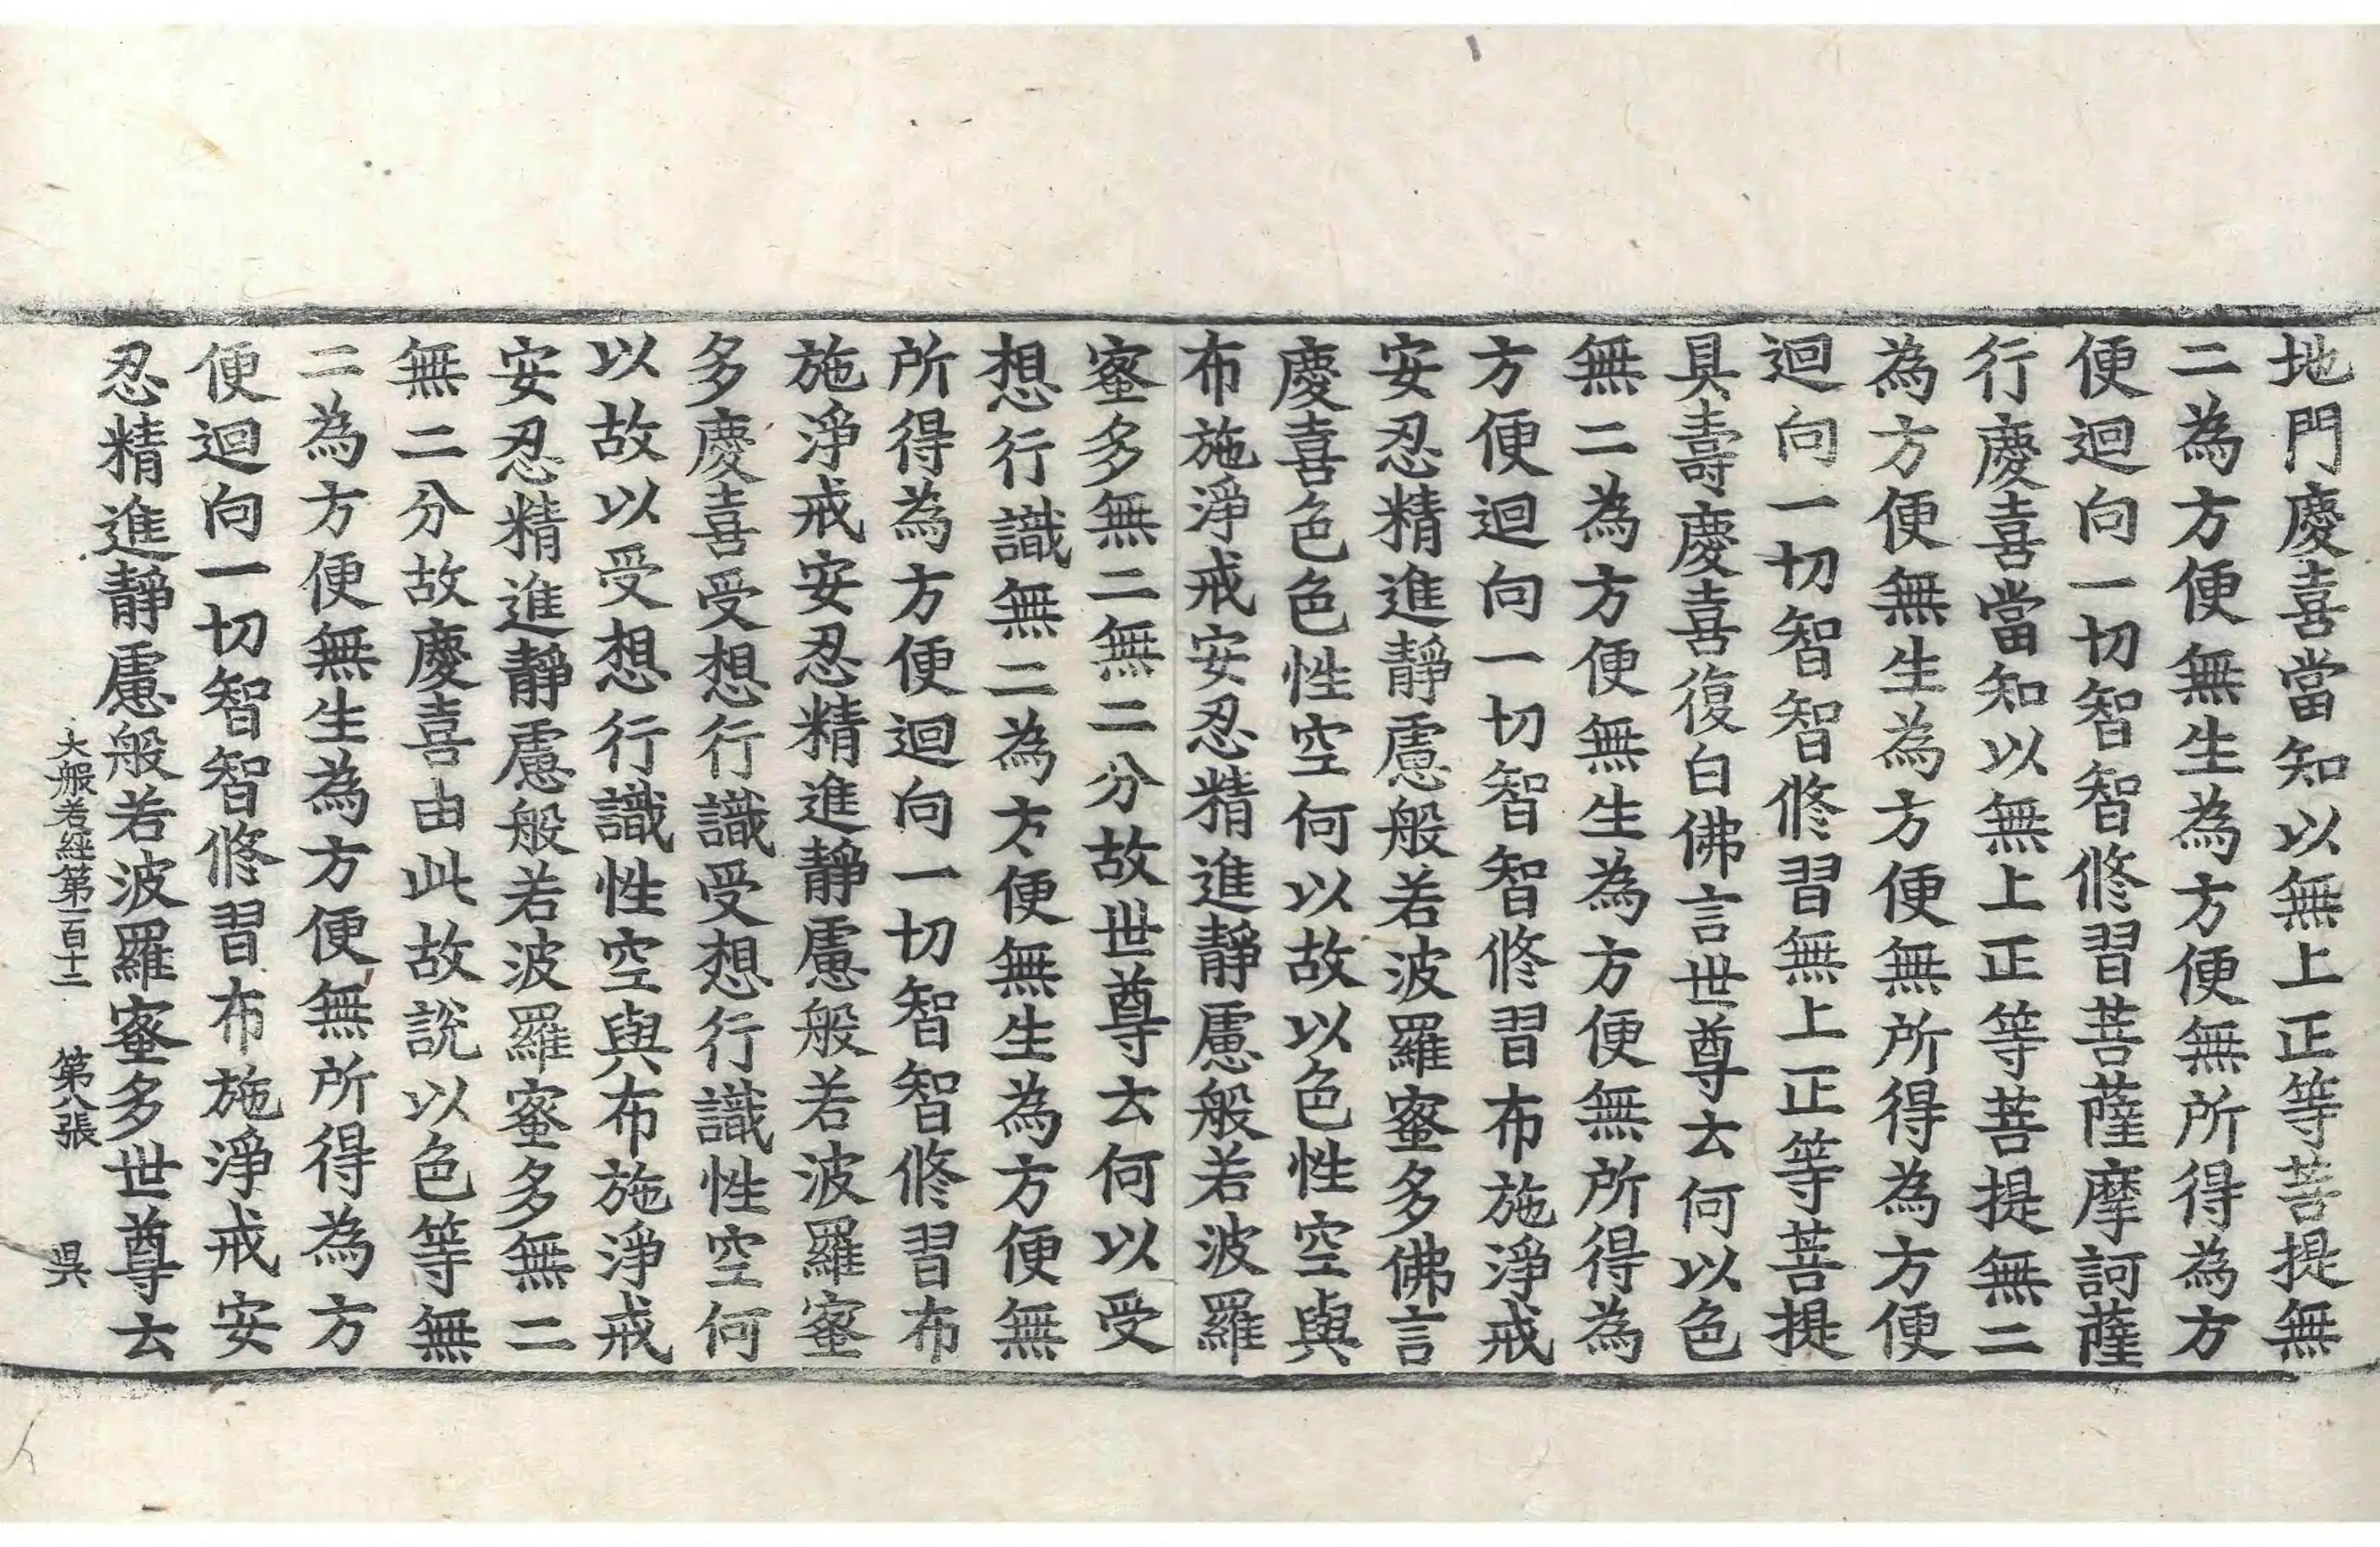 地門慶喜當知以無上正等菩提無
二為方便無生為方便無所得為方
便迴向一切智智修習菩薩摩訶薩
行慶喜當知以無上正等菩提無二
為方便無生為方便無所得為方便
迴向一切智智修習無上正等菩提
具壽慶喜復白佛言世尊云何以色
無二為方便無生為方便無所得為
方便迴向一切智智修習布施淨戒
安忍精進靜慮般若波羅蜜多佛言
慶喜色色性空何以故以色性空與
布施淨戒安忍精進靜慮般若波羅
蜜多無二無二分故世尊云何以受
想行識無二為方便無生為方便無
所得為方便迴向一切智智修習布
施淨戒安忍精進靜慮般若波羅蜜
多慶喜受想行識受想行識性空何
以故以受想行識性空與布施淨戒
安忍精進靜慮般若波羅蜜多無二
無二分故慶喜由此故說以色等無
二為方便無生為方便無所得為方
便迴向一切智智修習布施淨戒安
忍精進靜慮般若波羅蜜多世尊云
大般若經第一百十二 第八張 吳